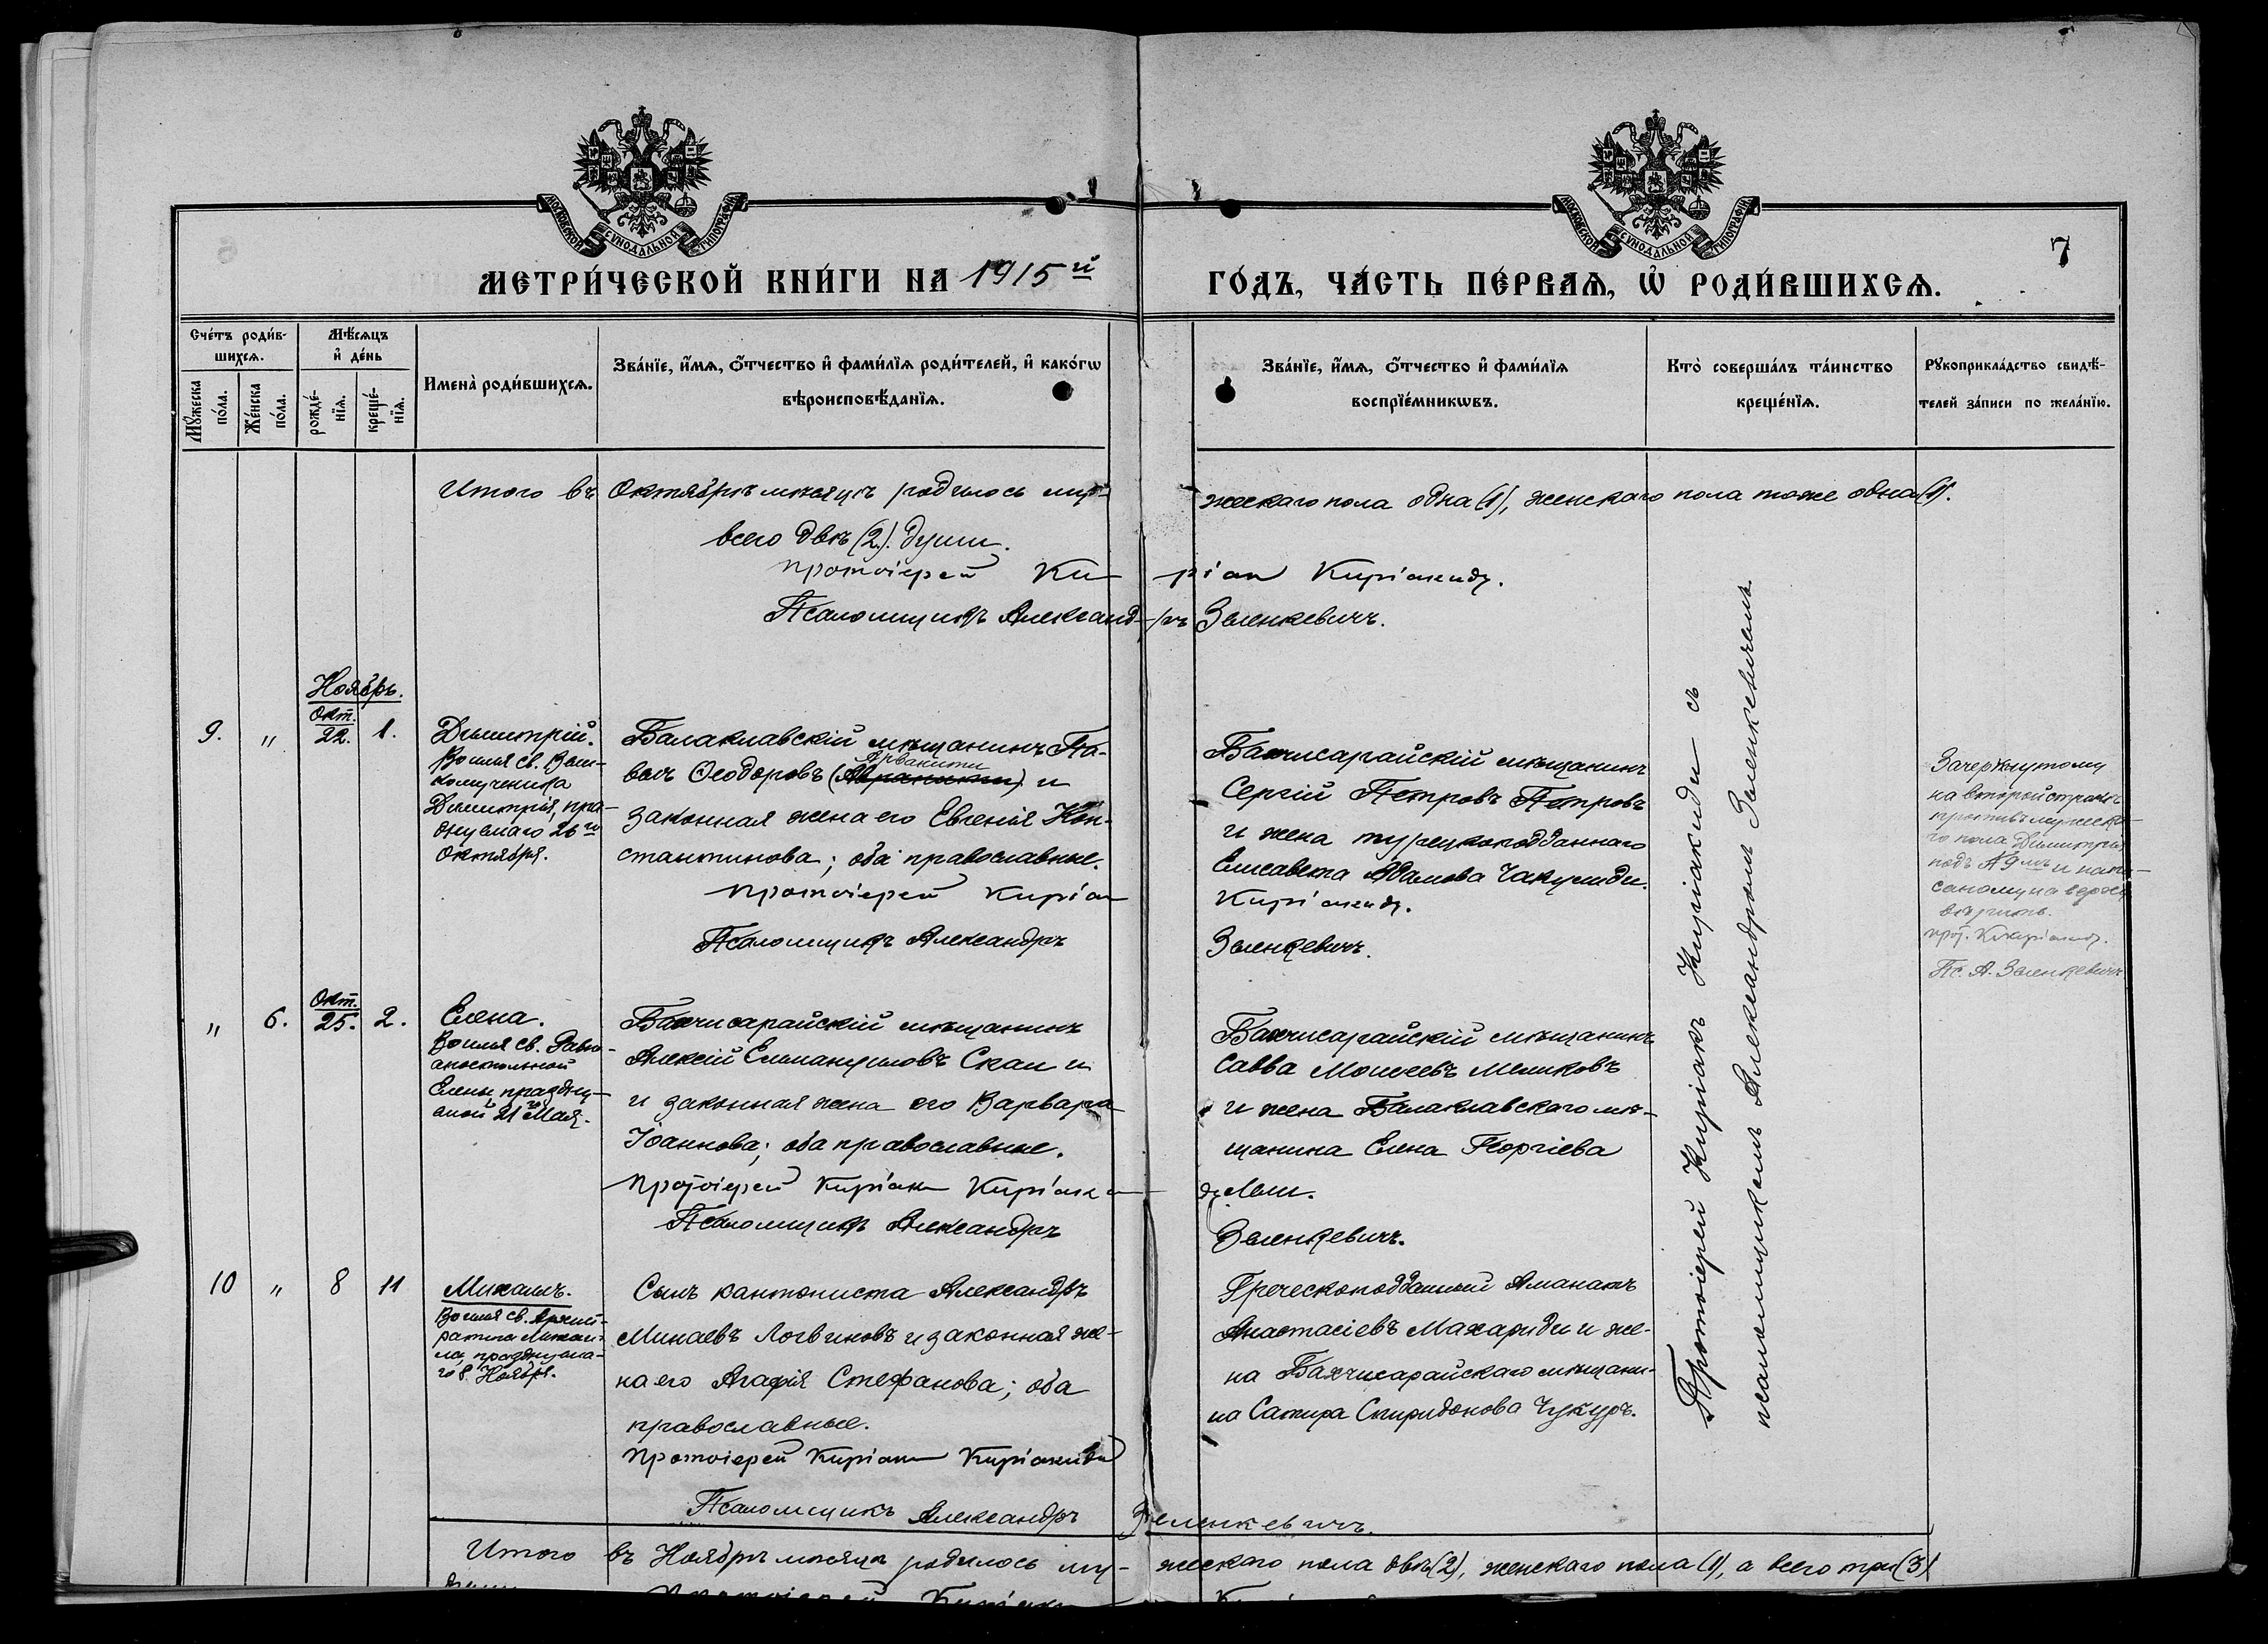 МОСКОВСКОЙ СѴНОДАЛЬНОЙ ТИПОГРАФІИ
МОСКОВСКОЙ СѴНОДАЛЬНОЙ ТИПОГРАФІИ
7
МЕТРИ́ЧЕСКОЙ КНИ́ГИ НА 1915й
ГО́ДЪ, ЧА́СТЬ ПЕ́РВАѦ, Ѡ҆ РОДИ́ВШИХСѦ.
Сче́тъ роди́в-
шихсѧ.
Мꙋ́жеска
по́ла.
Же́нска
по́ла.
Мѣ́сѧцъ
и҆ де́нь
рожде́-
нїѧ.
креще́-
нїѧ.
Имена̀ роди́вшихсѧ.
Зва́нїе, и҆́мѧ, ѻ҆́тчество и҆ фами́лїѧ роди́телей, и҆ како́гѡ
вѣроисповѣ́данїѧ.
Зва́нїе, и҆́мѧ, ѻ҆́тчество и҆ фами́лїѧ
воспрїе́мникѡвъ.
Кто̀ соверша́лъ та́инство
креще́нїѧ.
Рꙋкоприкла́дство свидѣ́-
телей за́писи по жела́нїю.
Итого въ Октябрѣ мѣсяцѣ родилось муж-
жескаго пола одна (1), женскаго пола тоже одна (1).
всего двѣ (2). души.
Протоіерей Ки-ріак Киріакиди.
Псаломщикъ Александ-ръ Зеленкевичъ.
Ноябрь.
9. " Окт. 22. 1.
Димитрій.
Во имя св. Вели-
комученика
Димитрія, пра-
днуемаго 26го
Октября.
Балаклавскій мѣщанинъ Па-
Арванити
велъ Ѳеодоровъ () и
законная жена его Евгенія Кон-
стантинова; оба православные.
Протоіерей Киріак
Псаломщикъ Александръ
Бахчисарайскій мѣщанинъ
Сергій Петровъ Петровъ
и жена турецкоподданнаго
Елисавета Адамова Чакулиди.
Киріакиди.
Зеленкевичъ.
Протоіерей Киріакъ Киріакиди съ
псаломщикомъ Александромъ Зеленкевичемъ.
Зачеркнутому
на второй страни
противъ мужеска-
го пола Димитрія
подъ №9мъ и напи-
саному на верху
вѣрить.
Прот. К. Киріакиди.
Пс. А. Зеленкевичъ
" 6. Окт. 25. 2.
Елена.
Во имя св. Равно-
апостольной
Елены, празднуе-
мой 21го Мая.
Бахчисарайскій мѣщанинъ
Алексій Еммануиловъ Скаи и
и законная жена его Варвара
Іоаннова; оба православные.
Протоіерей Киріак Киріаки-
Псаломщикъ Александръ
Бахчисарайскій мѣщанинъ
Савва Моисеевъ Меликовъ
и жена Балаклавскаго мѣ-
щанина Елена Георгіева
Зеленкевичъ.
10 " 8 11
Михаилъ.
Во имя св. Архист-
ратига Михаи-
ла, празднуема-
го 8 Ноября.
Сынъ кантониста Александръ
Минаевъ Логвиновъ и законная же-
на его Агафія Стефанова; оба
православные.
Протоіерей Киріак Киріакиди
Псаломщикъ Александръ Зеленкевичъ.
Греческоподданный Аманатъ
Анастасіевъ Махариди и же-
на Бахчисарайскаго мѣщани-
на Сатира Спиридонова Чукуръ.
Итого въ Ноябрѣ мѣсяцѣ родилось му-жескаго пола двѣ (2), женскаго пола (1), а всего три (3)